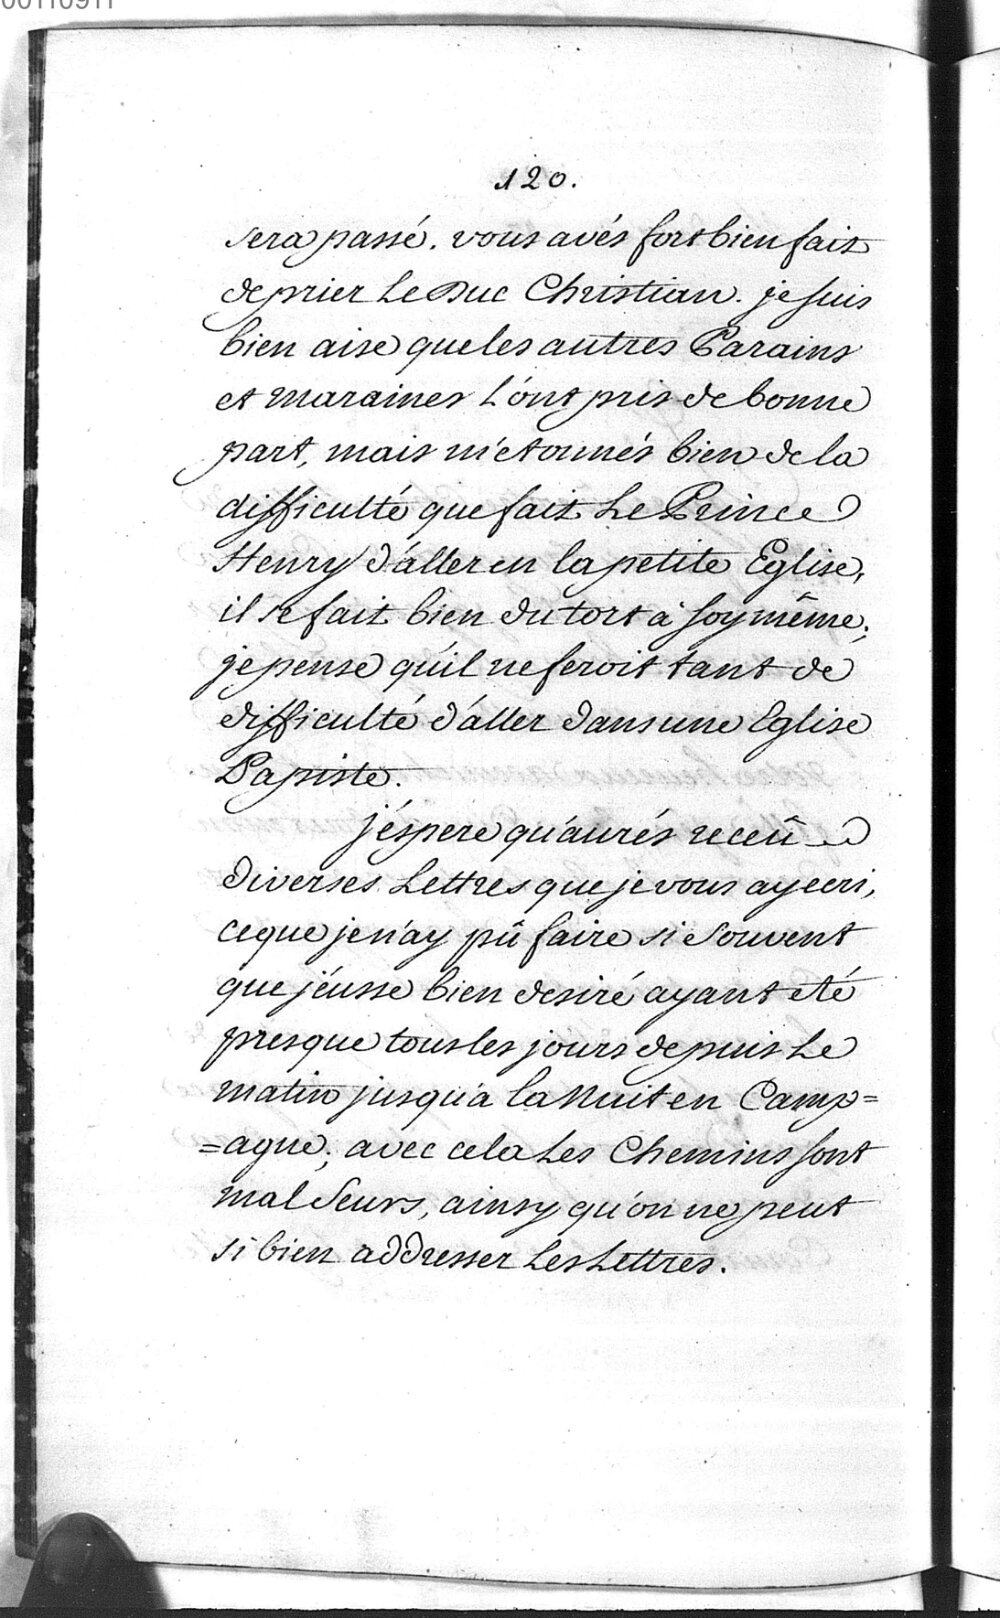 00110911
120.
sera passé. vous avés fort bien fait
de prier Le Duc Christian. je suis
bien aise que les autres Parains
et maraines l'ont pris de bonne
part, mais m'etonnés bien de la
difficulté que fait Le Prince
Henry d'aller en la petite Eglise,
il se fait bien du tort à soy même;
je pense qu'il ne feroit tant de
difficulté d'aller dans une Eglise
Papiste.
j'éspere qu'aurés receû
diverses Lettres que je vous ay ecri,
ce que je n'ay pû faire si souvent
que j'éusse bien desiré ayant eté
presque tous les jours depuis Le
matin jusqu'à la Nuit en Camp=
=agne; avec cela Les Chemins sont
mal seurs, ainsy qu'on ne peut
si bien addresser Les Lettres.